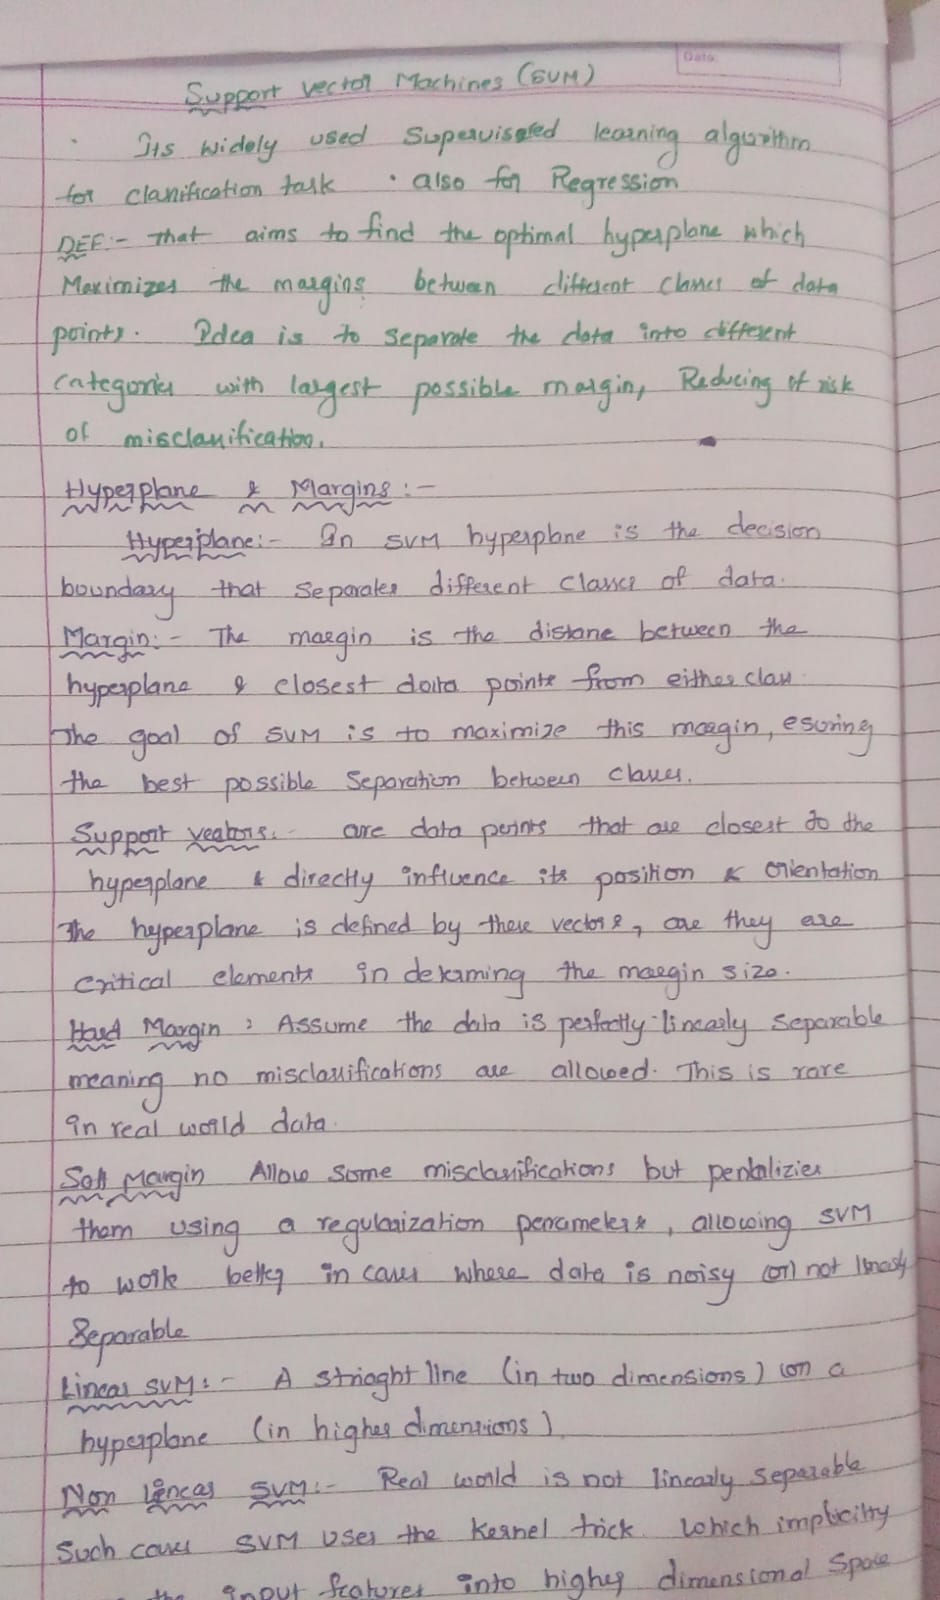 Date:
Support Vector Machines (SUM)
· Its widely used Supervisoted learning algorithm
for clanification task · also for Regression
DEF:- that aims to find the optimal hyperplane which
Maximizes the margins between different classes of data
points. Idea is to separate the data into different
categories with largest possible margin, Reducing of risk
of misclassification.
Hyperplane & Margins:-
Hyperplane:- In SVM hyperplane is the decision
boundary that separates different classes of data.
Margin:- The margin is the distane between the
hyperplane & closest data points from either class.
The goal of SVM is to maximize this margin, esuring
the best possible Separation between classes.
Support veators:- are data points that are closest to the
hyperplane & directly influence its position & Orientation
The hyperplane is defined by these vectors, are they are
critical elements in determing the margin size.
Hard Margin : Assume the data is perfectly linearly separable
meaning no misclassifications are allowed. This is rare
in real world data.
Soft Margin Allow some misclassifications but pentalizies
them using a regulaization perameters, allowing SVM
to work better in cases where data is noisy (or) not linearly
Separable
Linear SVM:- A strioght line (in two dimensions) (or) a
hyperplane (in higher dimensions).
Non linear SVM:- Real world is not linearly separable
Such cases SVM uses the Kernel trick which implicitly
the input features into higher dimensional Space